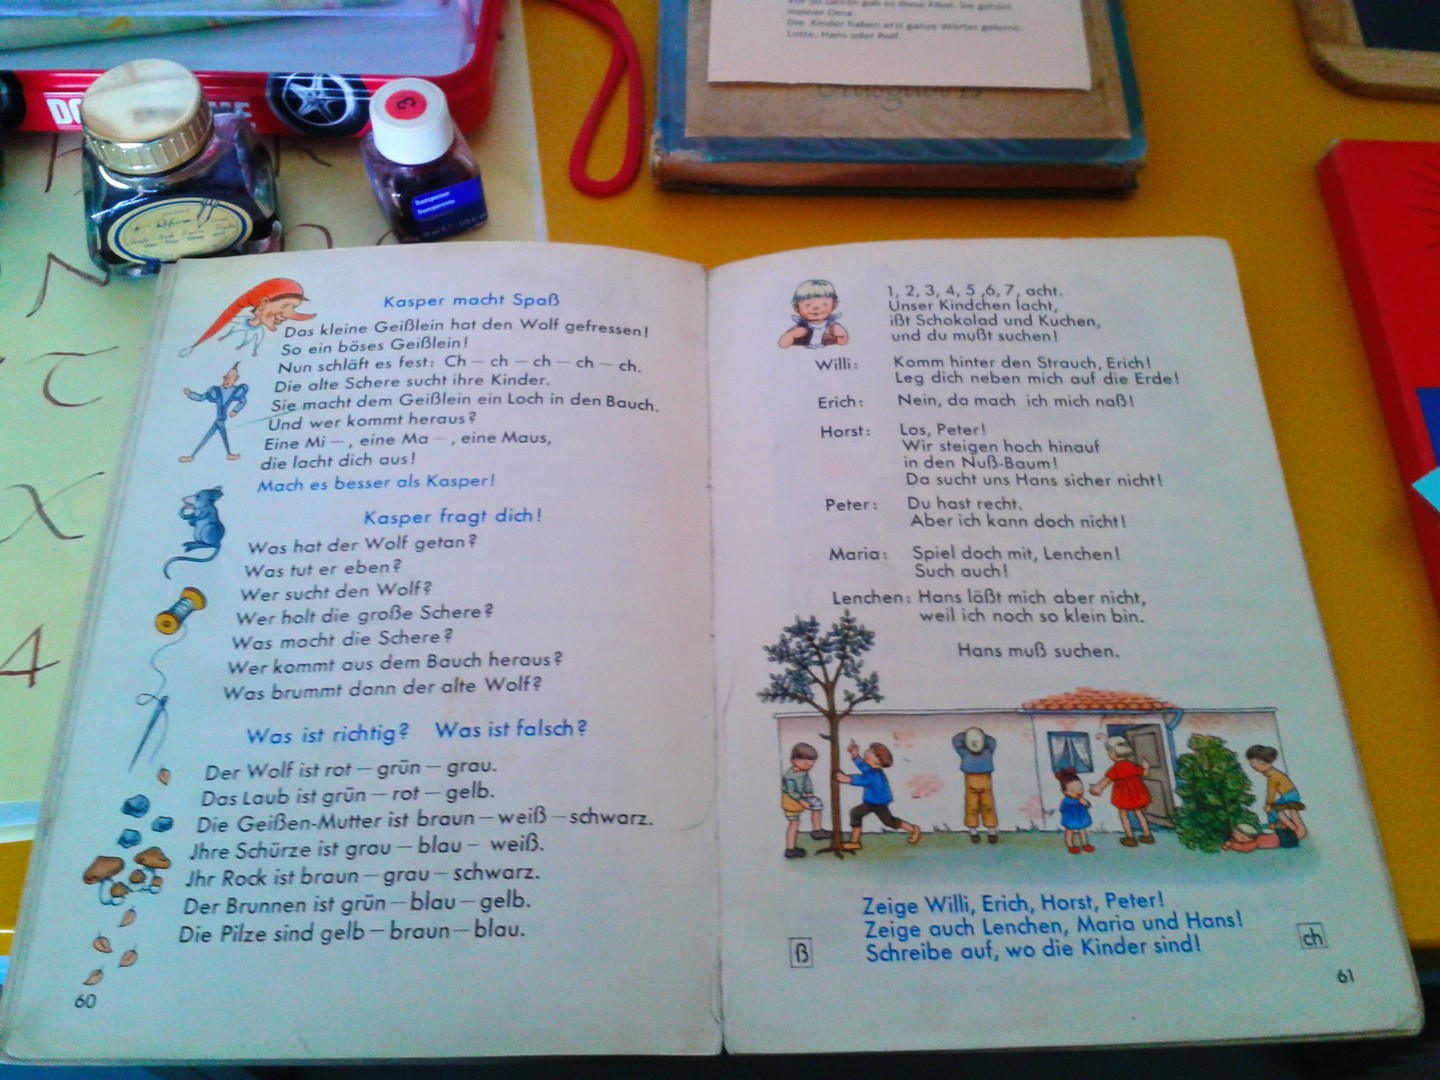 meiner Oma.
Die Kinder haben erst ganze Wörter gelernt:
Lotte, Hans oder Rolf.
3
Transparent
Kasper macht Spaß
Das kleine Geißlein hat den Wolf gefressen!
So ein böses Geißlein!
Nun schläft es fest: Ch – ch – ch – ch – ch.
Die alte Schere sucht ihre Kinder.
Sie macht dem Geißlein ein Loch in den Bauch.
Und wer kommt heraus?
Eine Mi –, eine Ma –, eine Maus,
die lacht dich aus!
Mach es besser als Kasper!
Kasper fragt dich!
Was hat der Wolf getan?
Was tut er eben?
Wer sucht den Wolf?
Wer holt die große Schere?
Was macht die Schere?
Wer kommt aus dem Bauch heraus?
Was brummt dann der alte Wolf?
Was ist richtig? Was ist falsch?
Der Wolf ist rot – grün – grau.
Das Laub ist grün – rot – gelb.
Die Geißen-Mutter ist braun – weiß – schwarz.
Jhre Schürze ist grau – blau – weiß.
Jhr Rock ist braun – grau – schwarz.
Der Brunnen ist grün – blau – gelb.
Die Pilze sind gelb – braun – blau.
60
1, 2, 3, 4, 5 ,6, 7, acht.
Unser Kindchen lacht,
ißt Schokolad und Kuchen,
und du mußt suchen!
Willi: Komm hinter den Strauch, Erich!
Leg dich neben mich auf die Erde!
Erich: Nein, da mach ich mich naß!
Horst: Los, Peter!
Wir steigen hoch hinauf
in den Nuß-Baum!
Da sucht uns Hans sicher nicht!
Peter: Du hast recht.
Aber ich kann doch nicht!
Maria: Spiel doch mit, Lenchen!
Such auch!
Lenchen: Hans läßt mich aber nicht,
weil ich noch so klein bin.
Hans muß suchen.
Zeige Willi, Erich, Horst, Peter!
Zeige auch Lenchen, Maria und Hans!
Schreibe auf, wo die Kinder sind!
ß
ch
61